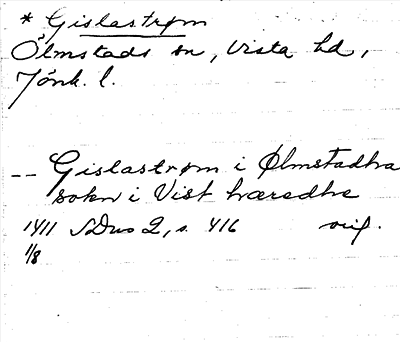 * Gislastrøm
Ölmstads sn, Vista hd,
Jönk. l.
-- Gislastrøm i Ølmstadha
sokn i Vist hæredhe
1411 SDns 2, s. 416 orig.
1/8